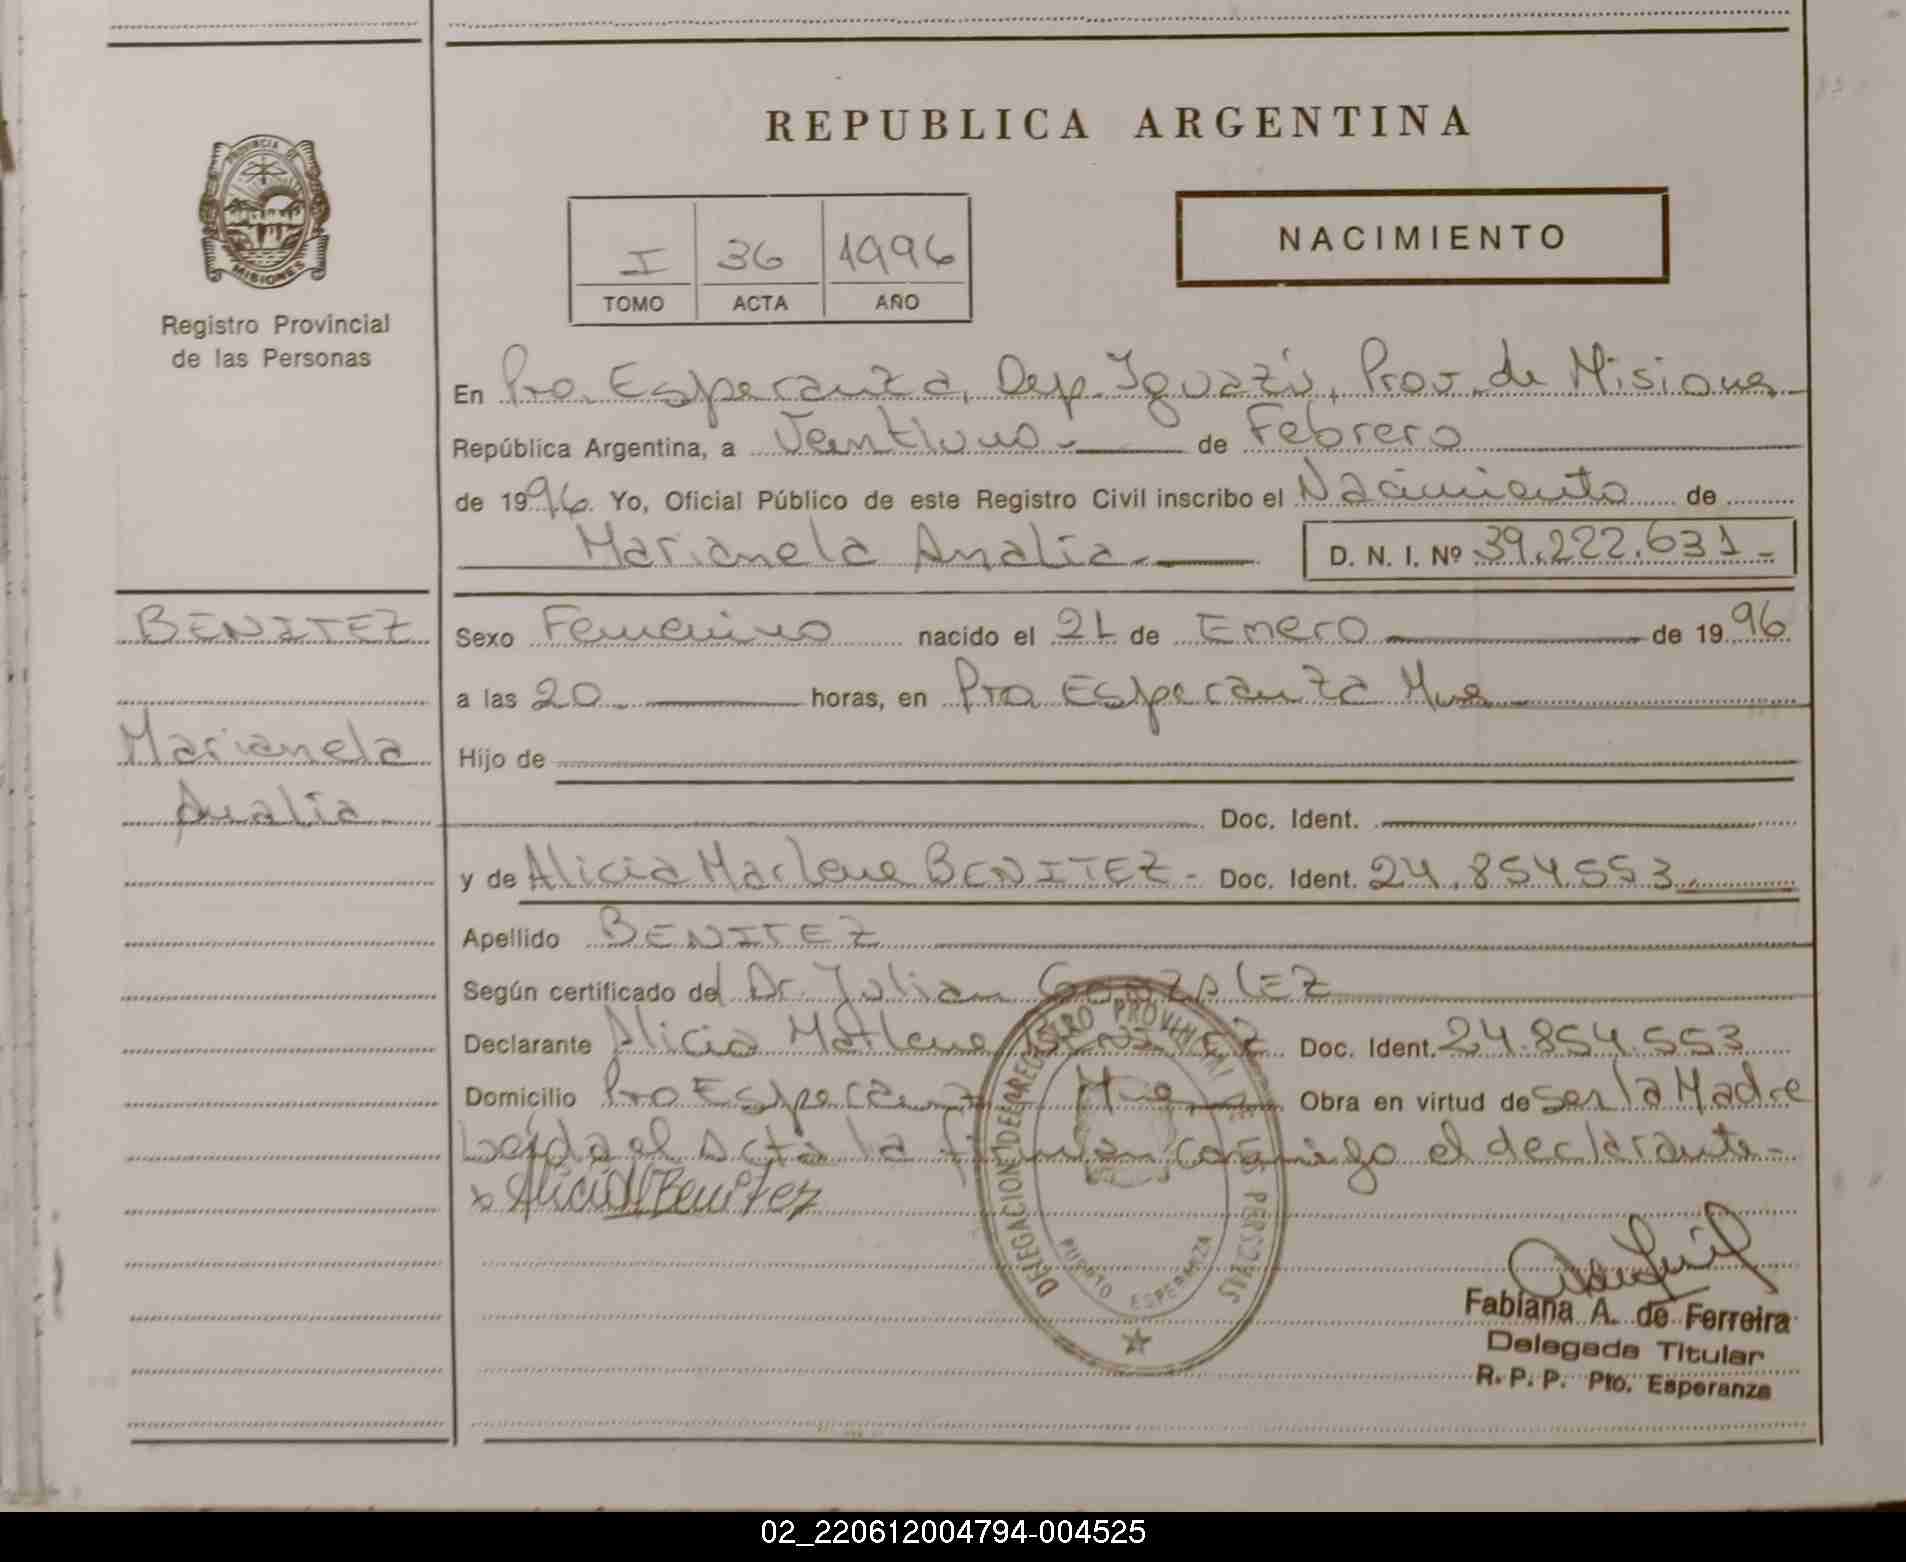 REPUBLICA ARGENTINA
PROVINCIA DE
MISIONES
Registro Provincial
de las Personas
I 36 1996
TOMO ACTA AÑO
NACIMIENTO
En Pto. Esperanza, Dep. Iguazú, Prov. de Misiones
República Argentina, a Veintiuno de Febrero
de 1996 Yo, Oficial Público de este Registro Civil inscribo el Nacimiento de
Marianela Analia D. N. I. Nº 39.222.631
BENITEZ
Marianela
Analia
Sexo Femenino nacido el 21 de Enero de 1996
a las 20 horas, en Pto Esperanza Mnes
Hijo de
Doc. Ident.
y de Alicia Marlene BENITEZ - Doc. Ident. 24.854.553
Apellido BENITEZ
Según certificado del Dr. Julian GonzalEZ
Declarante Alicia Marlene BENITEZ Doc. Ident. 24.854.553
Domicilio Pto Esperanza Mnes Obra en virtud de ser la Madre
Leída el Acta la firman conmigo el declarante-
Alicia M Benitez
DELEGACION DEL REGISTRO PROVINCIAL DE PERSONAS
PUERTO ESPERANZA
Fabiana A. de Ferreira
Delegada Titular
R. P. P. Pto. Esperanza
02_220612004794-004525